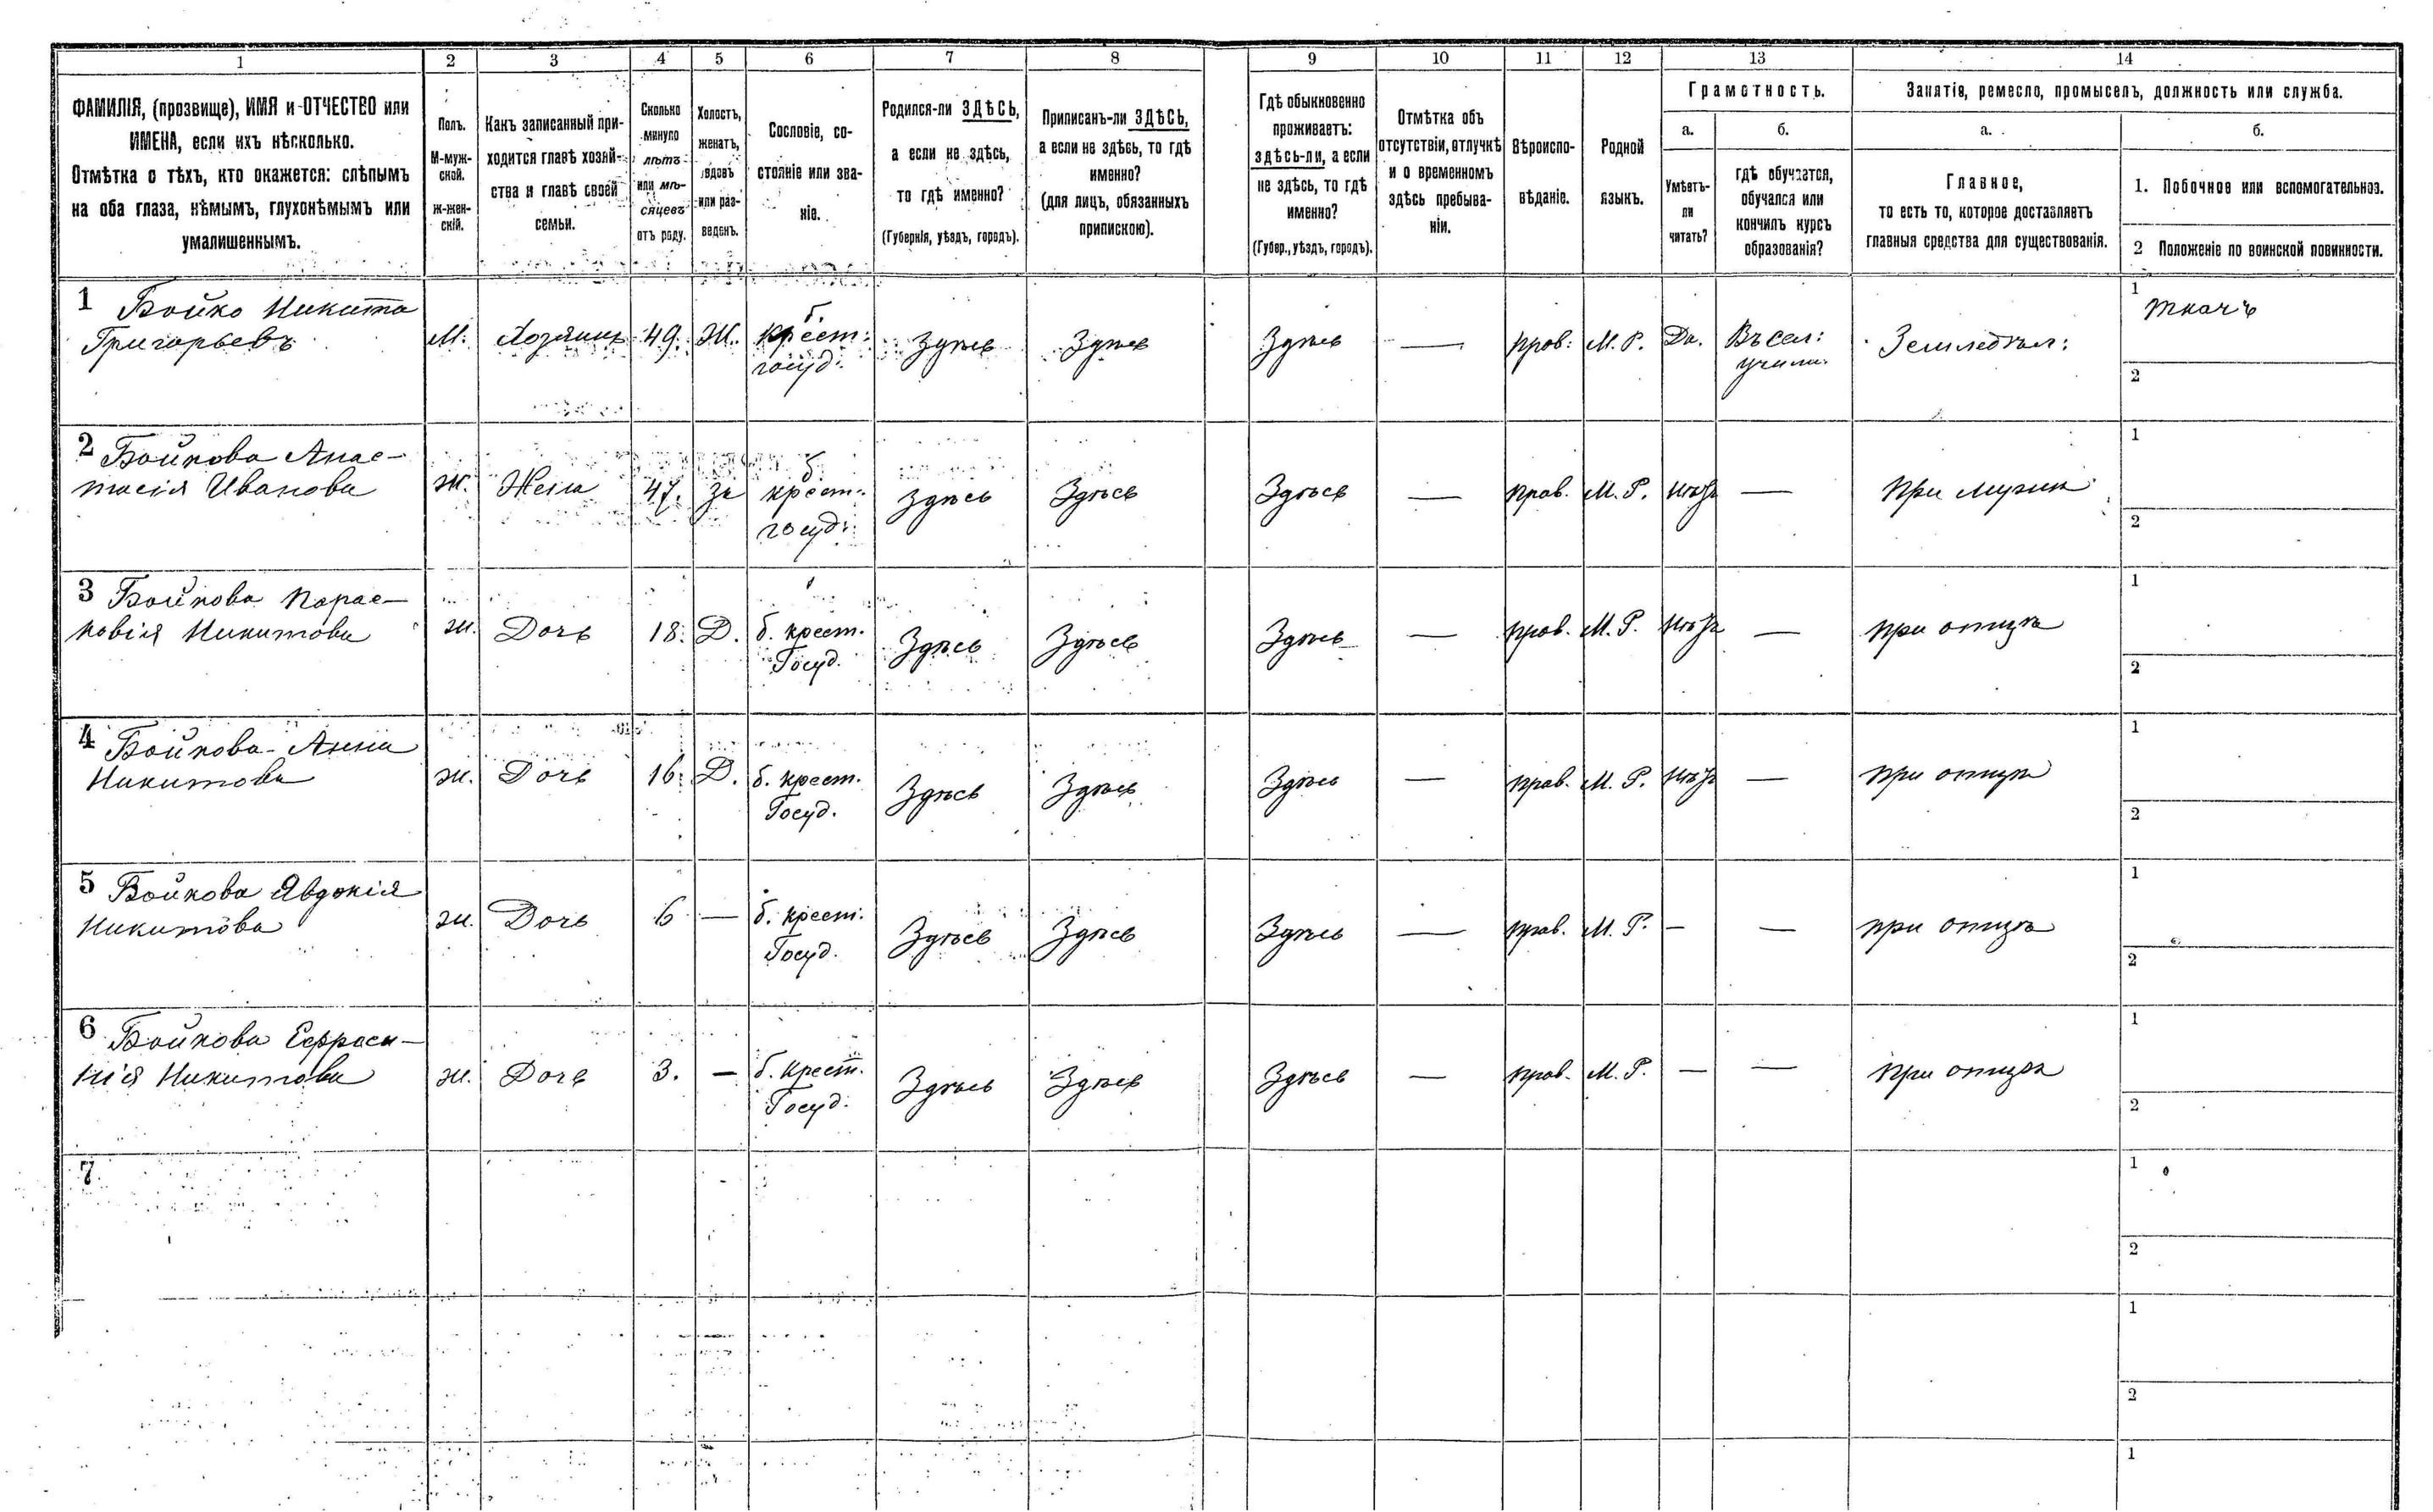 1 2 3 4 5 6 7 8 9 10 11 12 13 14
ФАМИЛІЯ, (прозвище), ИМЯ и ОТЧЕСТВО или
ИМЕНА, если ихъ нѣсколько.
Отмѣтка о тѣхъ, кто окажется: слѣпымъ
на оба глаза, нѣмымъ, глухонѣмымъ или
умалишеннымъ.
Полъ.
М-муж-
ской.
Ж-жен-
скій.
Какъ записанный при-
ходится главѣ хозяй-
ства и главѣ своей
семьи.
Сколько
минуло
лѣтъ
или мѣ-
сяцевъ
отъ роду.
Холостъ,
женатъ,
вдовъ
или раз-
веденъ.
Сословіе, со-
стояніе или зва-
ніе.
Родился-ли ЗДѢСЬ,
а если не здѣсь,
то гдѣ именно?
(Губернія, уѣздъ, городъ).
Приписанъ-ли ЗДѢСЬ,
а если не здѣсь, то гдѣ
именно?
(для лицъ, обязанныхъ
припискою).
Гдѣ обыкновенно
проживаетъ:
здѣсь-ли, а если
не здѣсь, то гдѣ
именно?
(Губер., уѣздъ, городъ).
Отмѣтка объ
отсутствіи, отлучкѣ
и о временномъ
здѣсь пребыва-
ніи.
Вѣроиспо-
вѣданіе.
Родной
языкъ.
Грамотность.
а.
Умѣетъ-
ли
читать?
б.
гдѣ обучается,
обучался или
кончилъ курсъ
образованія?
Занятіе, ремесло, промыселъ, должность или служба.
а.
Главное,
то есть то, которое доставляетъ
главныя средства для существованія.
б.
1. Побочное или вспомогательное.
2 Положеніе по воинской повинности.
1 Бойко Никита
Григорьевъ
М. Хозяинъ 49. Ж. б.
крест:
госуд. Здѣсь Здѣсь Здѣсь — прав: М. Р. Да. Въ сел:
учили. Земледѣл:
1 ткачъ
2
2 Бойкова Анас-
тасія Иванова
ж. Жена 47. За б.
крест.
госуд. Здѣсь Здѣсь Здѣсь — прав. М. Р. Нѣтъ — при мужѣ
1
2
3 Бойкова Парас-
ковія Никитова
ж. Дочь 18. Д. б. крест.
Госуд. Здѣсь Здѣсь Здѣсь — прав. М. Р. Нѣтъ — при отцѣ
1
2
4 Бойкова Анна
Никитова
ж. Дочь 16. Д. б. крест.
Госуд. Здѣсь Здѣсь Здѣсь — прав. М. Р. Нѣтъ — при отцѣ
1
2
5 Бойкова Явдокія
Никитова
ж. Дочь 6 — б. крест.
Госуд. Здѣсь Здѣсь Здѣсь — прав. М. Р. — — при отцѣ
1
2
6 Бойкова Ефраси-
нія Никитова
ж. Дочь 3. — б. крест.
Госуд. Здѣсь Здѣсь Здѣсь — прав. М. Р. — — при отцѣ
1
2
7
1
2
1
2
1